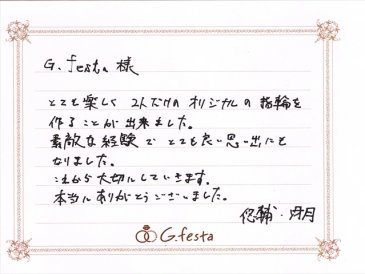 G.festa 様
とても楽しく 2人だけの オリジナルの 指輪を
作ることが 出来ました。
素敵な経験で とても良い思い出にも
なりました。
これから大切にしていきます。
本当にありがとうございました。
悠輔・
G.festa